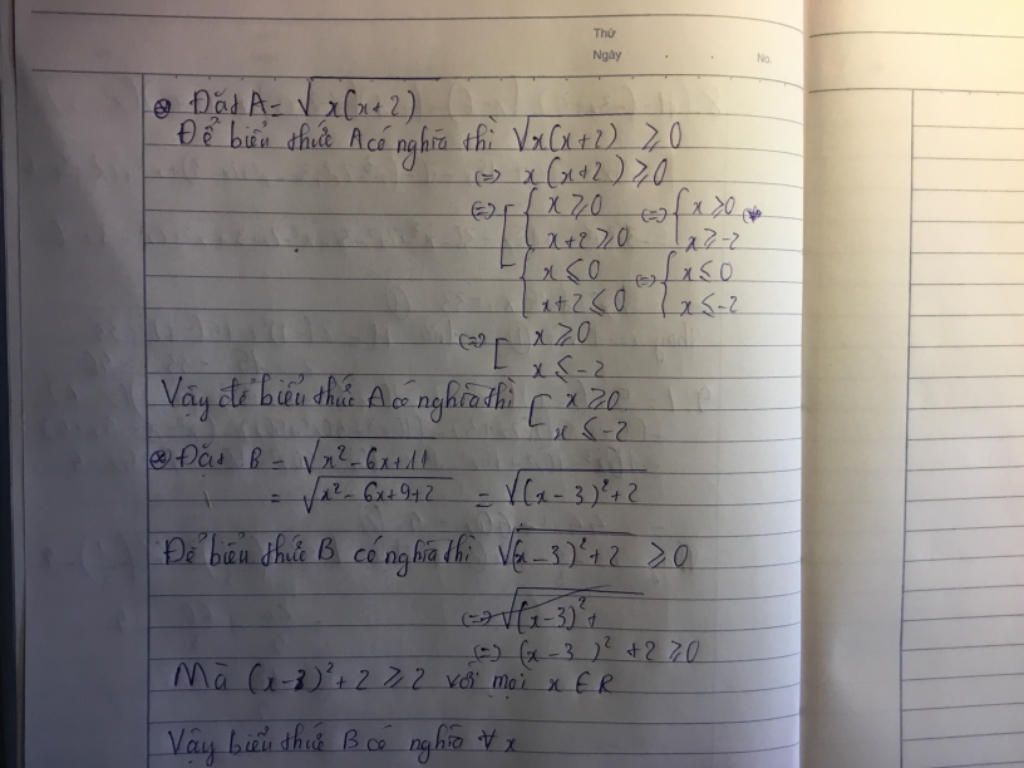 Thứ
Ngày . . No.
⊛ Đặt A = √x(x+2)
Để biểu thức A có nghĩa thì √x(x+2) ≥ 0
(=) x(x+2) ≥ 0
(=) [ { x ≥ 0 (=) { x ≥ 0
x+2 ≥ 0 x ≥ -2
{ x ≤ 0 (=) { x ≤ 0
x+2 ≤ 0 x ≤ -2
(=) [ x ≥ 0
x ≤ -2
Vậy để biểu thức A có nghĩa thì [ x ≥ 0
x ≤ -2
⊛ Đặt B = √x²-6x+11
= √x²-6x+9+2 = √(x-3)²+2
Để biểu thức B có nghĩa thì √(x-3)²+2 ≥ 0
(=) √(x-3)²+
(=) (x-3)²+2 ≥ 0
Mà (x-3)²+2 ≥ 2 với mọi x ∈ R
Vậy biểu thức B có nghĩa ∀ x